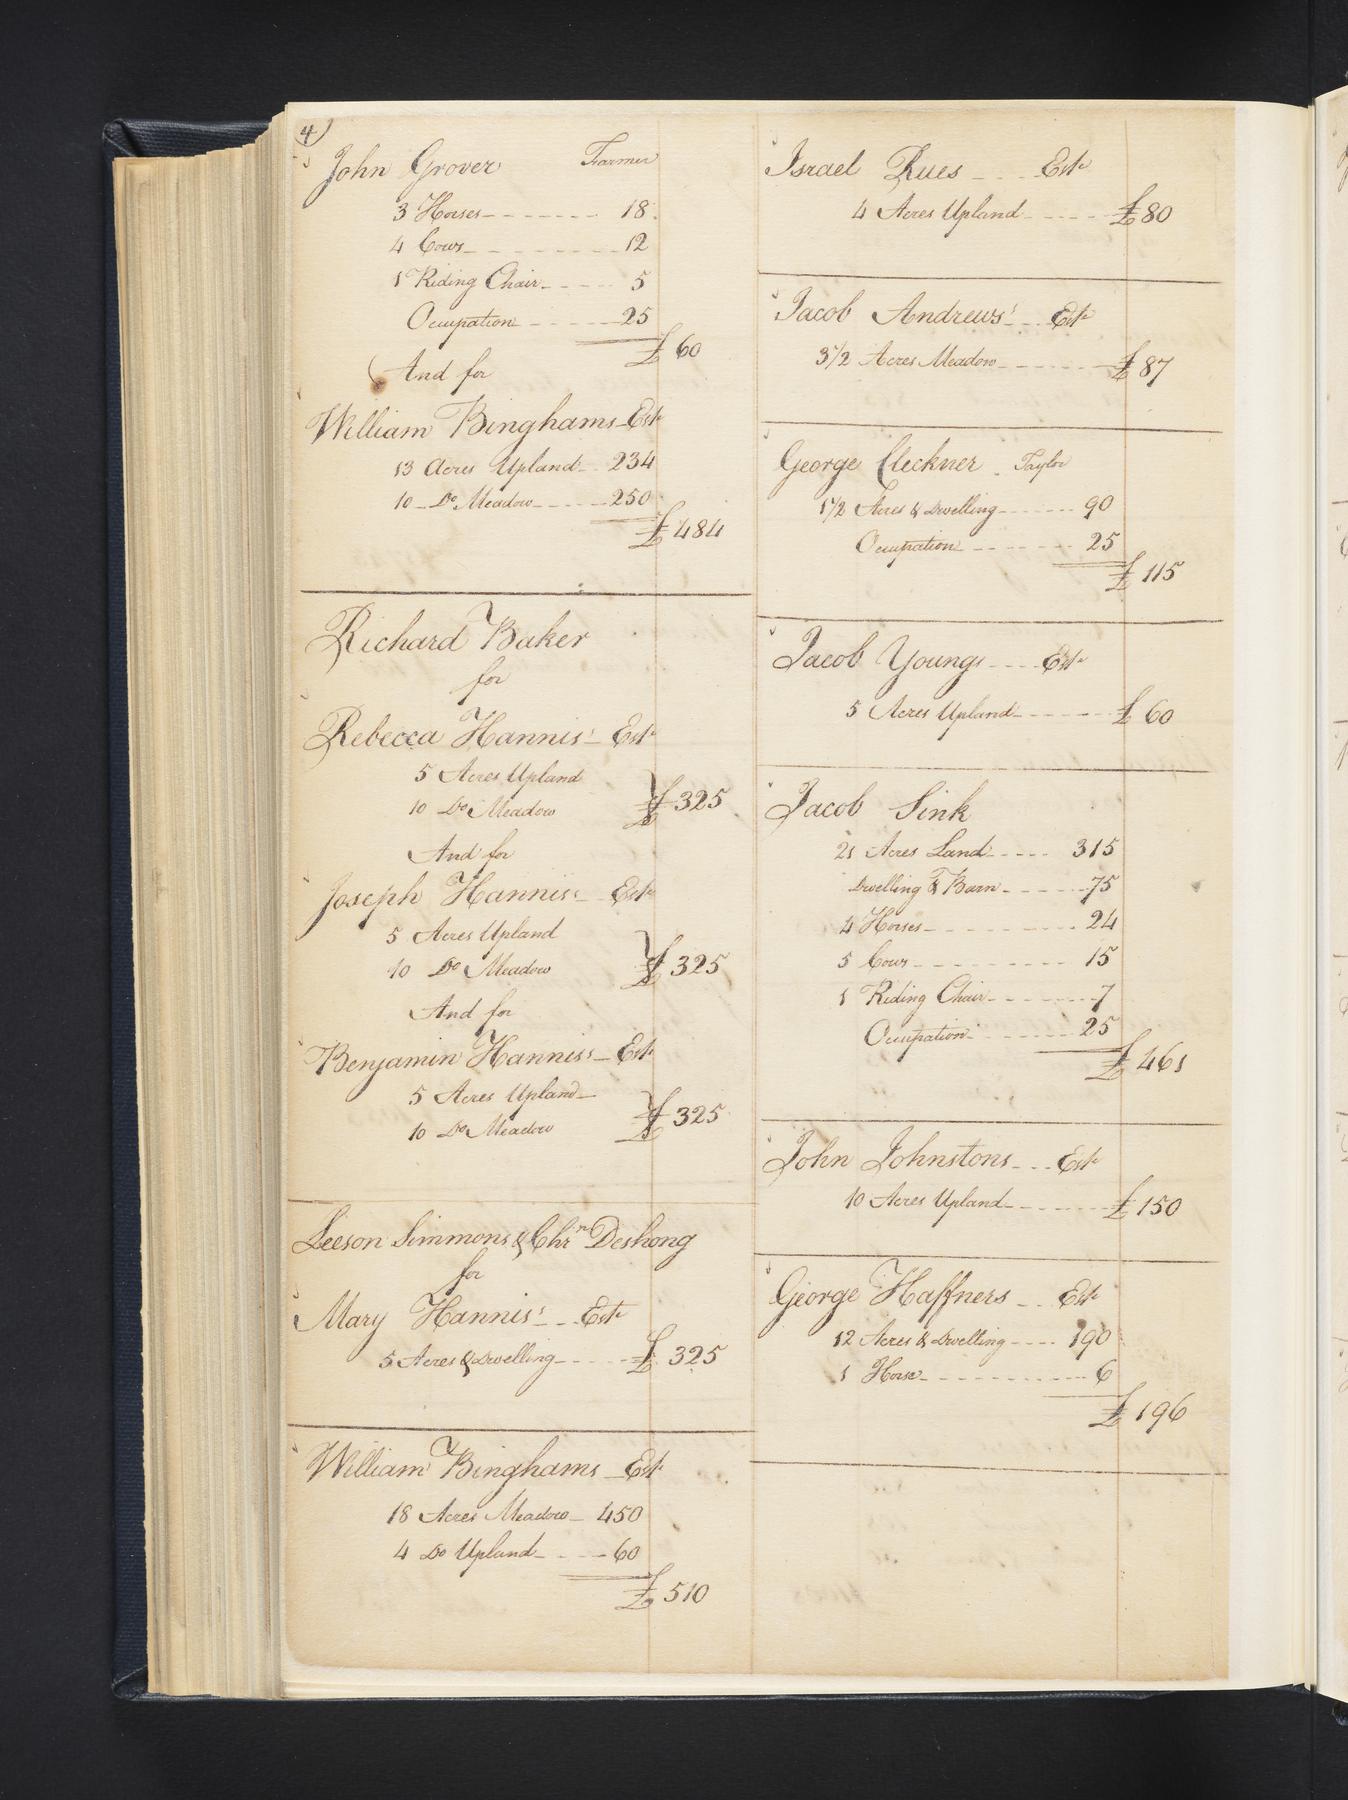 4)
John Grover Farmer
3 Horses 18
4 Cows 12
1 Riding Chair 5
Occupation 25
£ 60
And for
William Binghams Este
13 Acres Upland 234
10 Do Meadow 250
£ 484
Richard Baker
for
Rebecca Hannis' Este
5 Acres Upland
10 Do Meadow } £ 325
And for
Joseph Hannis' Este
5 Acres Upland
10 Do Meadow } £ 325
And for
Benjamin Hannis's Este
5 Acres Upland
10 Do Meadow } £ 325
Leeson Simmons & Chrn Deshong
for
Mary Hannis' Este
5 Acres & Dwelling £ 325
William Binghams Este
18 Acres Meadow 450
4 Do Upland 60
£ 510
Israel Rues Este
4 Acres Upland £ 80
Jacob Andrews' Este
3 1/2 Acres Meadow £ 87
George Cleckner Taylor
1 1/2 Acres & Dwelling 90
Occupation 25
£ 115
Jacob Youngs Este
5 Acres Upland £ 60
Jacob Sink
21 Acres Land 315
Dwelling & Barn 75
4 Horses 24
5 Cows 15
1 Riding Chair 7
Occupation 25
£ 461
John Johnstons Este
10 Acres Upland £ 150
George Haffners Este
12 Acres & Dwelling 190
1 Horse 6
£ 196